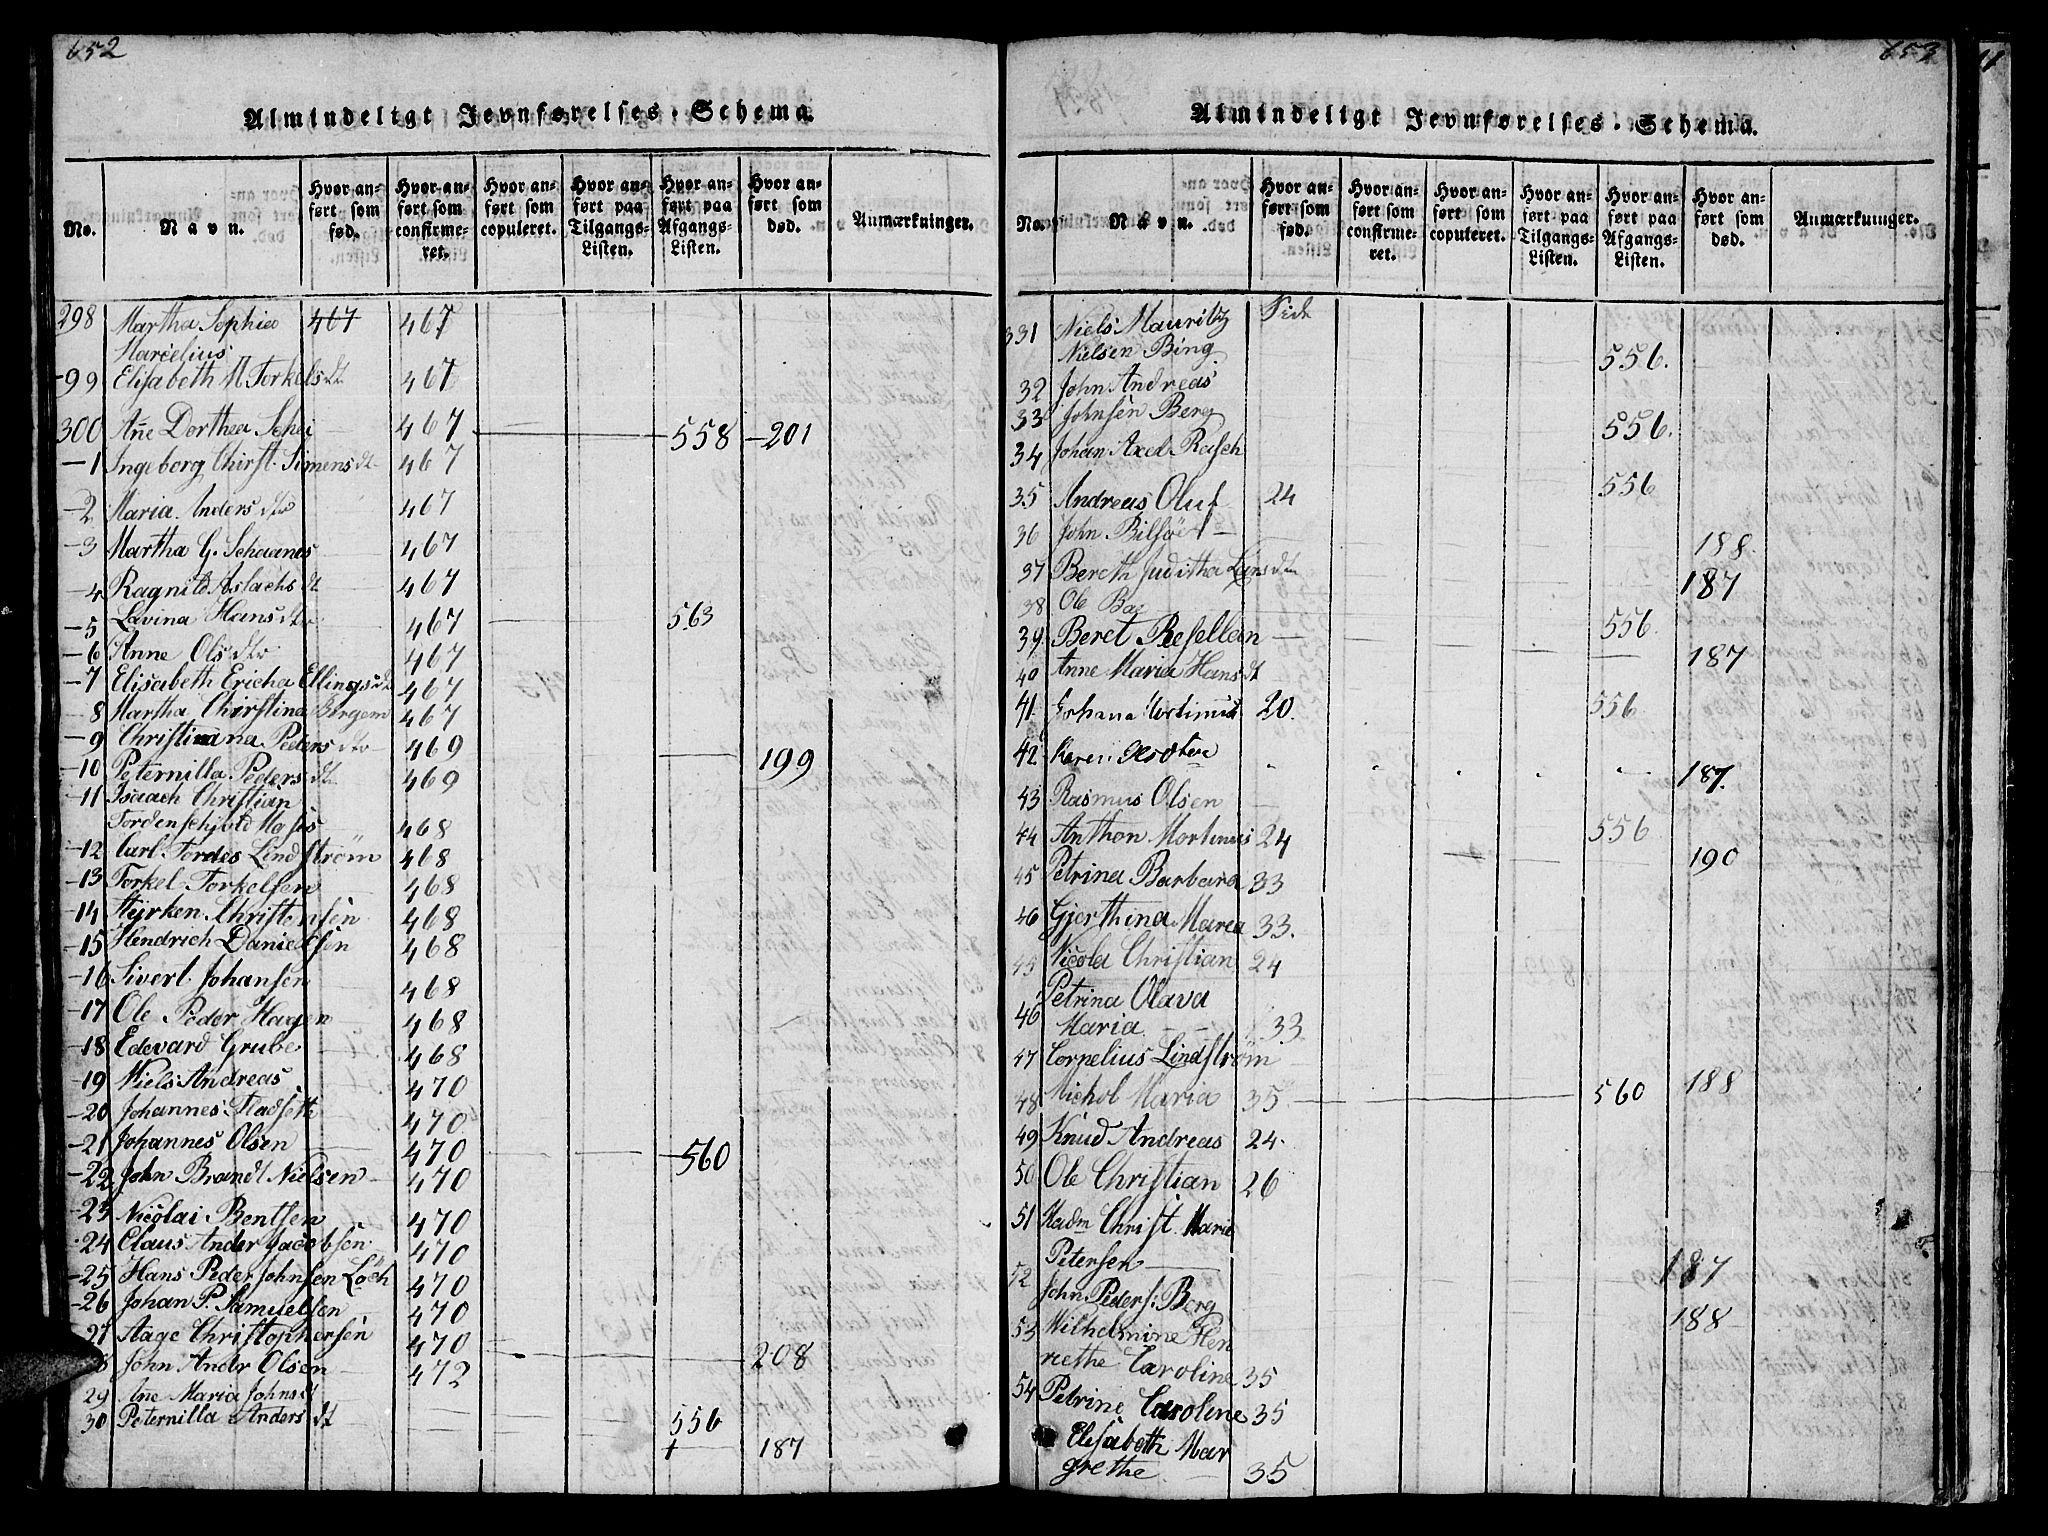 652
Almindeligt Jevnførelses-Schema.
No. | Navn. | Hvor anført som fød. | Hvor anført som confirmeret. | Hvor anført som copuleret. | Hvor anført paa Tilgangs-Listen. | Hvor anført paa Afgangs-Listen. | Hvor anført som død. | Anmærkninger.
298 Martha Sophie 467 467
Marcelius
-99 Elisabeth M Torkelsdt 467
300 Añe Dorthea Schei 467 558 -201
-1 Ingeborg Chirst. Simensdt 467
-2 Maria Anders dtr 467
-3 Martha G. Schaanes 467
-4 Ragnild Aslachs dt 467
-5 Lavina Hansdtr 467 563
-6 Anne Olsdtr 467
-7 Elisabeth Ericha Ellingsdt 467
-8 Martha Christina Bergem 467
-9 Christiana Peders dtr 469 199
-10 Peternilla Peders dt 469
-11 Isaach Christian
Tordenschjold Moses 468
-12 Carl Tordes Lindstrøm 468
-13 Torkel Torkelsen 468
-14 Styrken Christensen 468
-15 Hendrich Danielsen 468
-16 Sivert Johansen 468
-17 Ole Peder Hagen 468
-18 Edevard Grube 468
-19 Niels Andreas 470
-20 Johannes Fladseth 470
-21 Johannes Olsen 470 560
-22 John Brandt Nielsen 470
-23 Nicolai Bentsen 470
-24 Claus Ander Jacobsen 470
-25 Hans Peder Johnsen Loch 470
-26 Johan P. Samuelsen 470
27 Aage Christophersen 470 208
John Andr Olsen 472
29 Añe Maria Johnsdt 556
30 Peternilla Anders dt 187
653
Almindeligt Jevnførelses-Schema.
No. | Navn. | Hvor anført som fød. | Hvor anført som confirmeret. | Hvor anført som copuleret. | Hvor anført paa Tilgangs-Listen. | Hvor anført paa Afgangs-Listen. | Hvor anført som død. | Anmærkninger.
331 Niels Mauritz Side
Nielsen Bing 556.
32 John Andreas
33 Johnsen Berg 556.
34 Johan Axel Rasch 556
35 Andreas Oluf 24
36 John Bilsöe 188.
37 Bereth Juditha Larsdtr 187
38 Ole 556.
39 Beret Resellean 187
40 Anne Maria Hansdt 556
41 Johana Mortinus 20.
42 Karen 187.
43 Rasmus Olsen 556
44 Anthon Mortinus 24 190
45 Petrina Barbara 33
46 Gjorthina Maria 33.
45 Nicola Christian 24
46 Petrina Olava
Maria 33.
47 Cornelius Lindstrøm 188
48 Michol Maria 35 560
49 Knud Andreas 24.
50 Ole Christian 26
51 Madm Christ. Maria
Petersen 187
52 John Peders: Berg 188
53 Wilhelmine Hen
riethe Caroline 35
54 Petrine Caroline 35
Elisabeth Mar
grethe 35